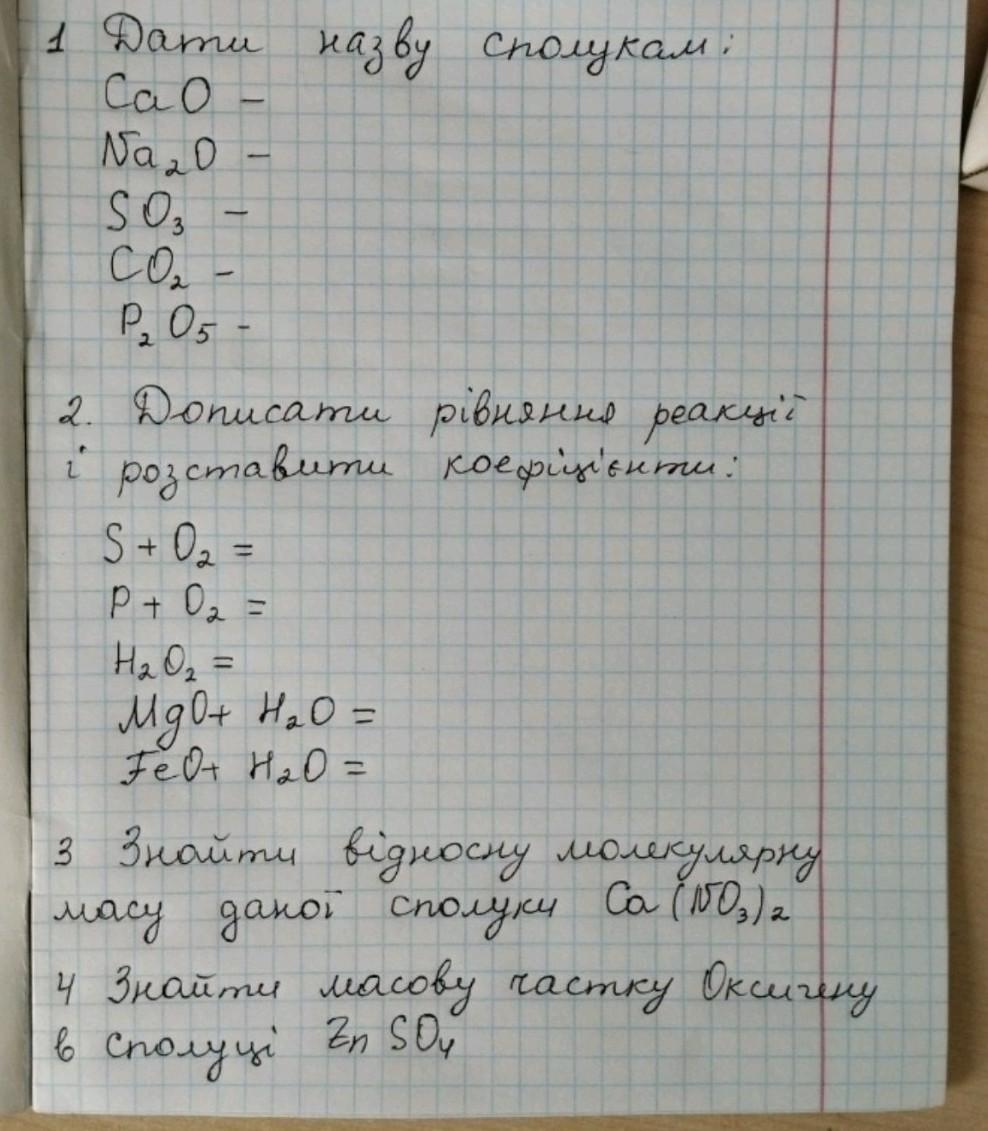 1 Дати назву сполукам:
CaO –
Na₂O –
SO₃ –
CO₂ –
P₂O₅ -
2. Дописати рівняння реакції
і розставити коефіцієнти:
S + O₂ =
P + O₂ =
H₂O₂ =
MgO+ H₂O =
FeO+ H₂O =
3 Знайти відносну молекулярну
масу даної сполуки Ca(NO₃)₂
4 Знайти масову частку Оксигену
в сполуці ZnSO₄